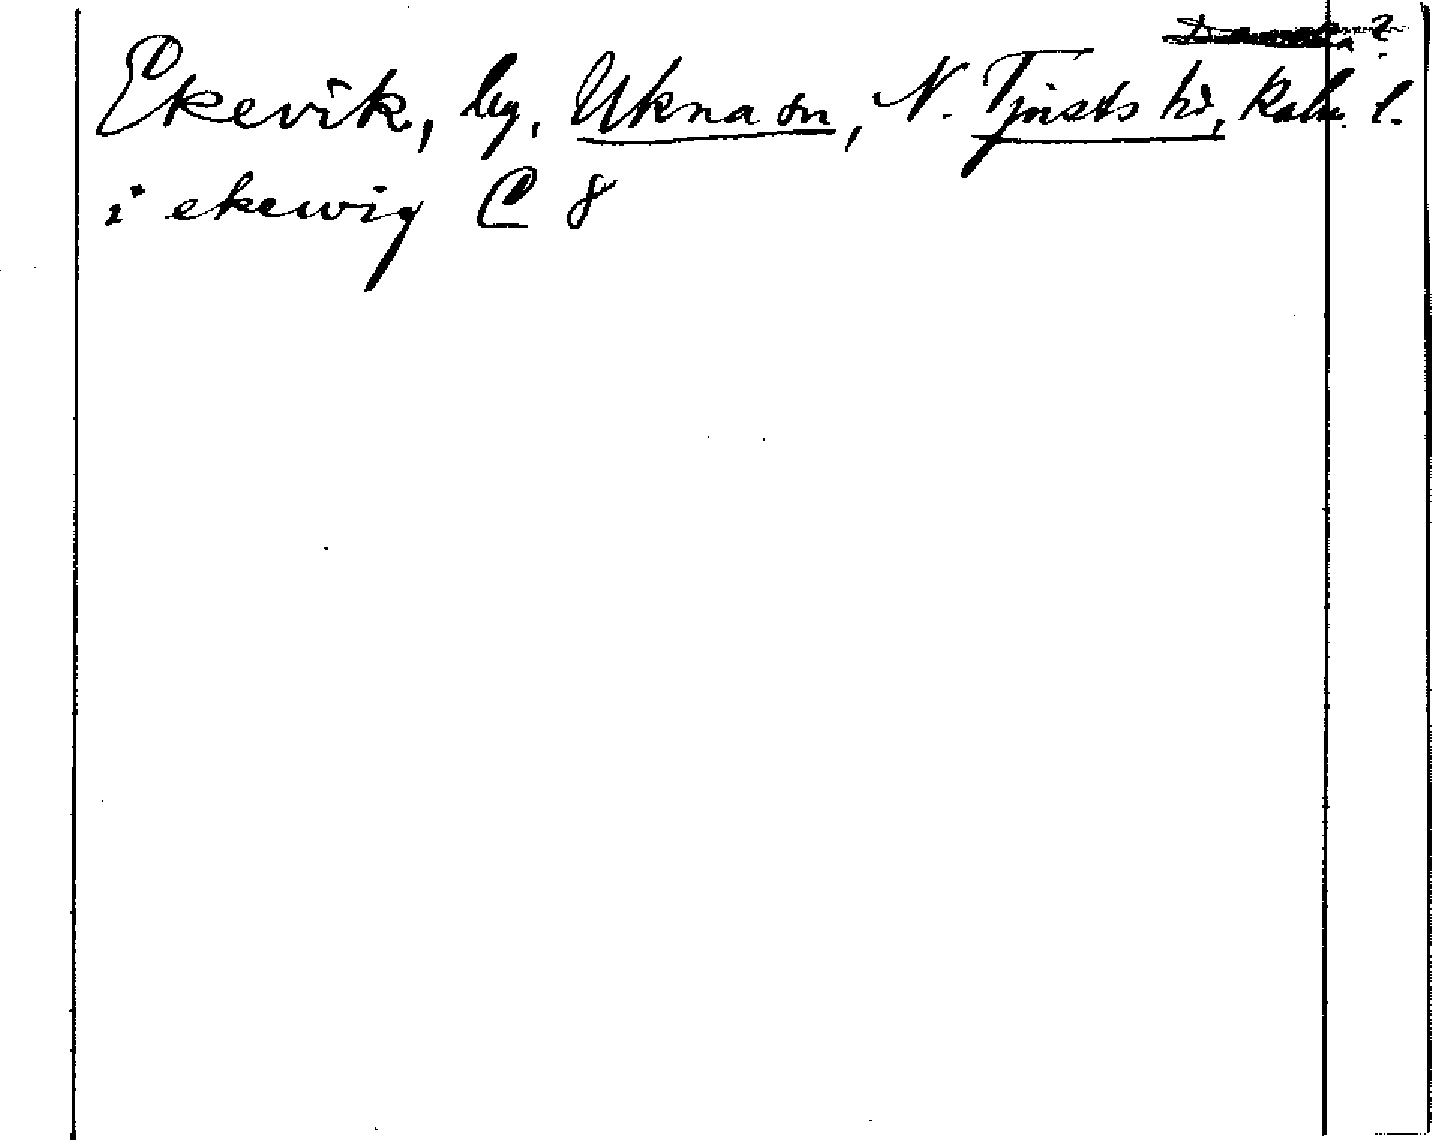 ?
Ekevik, by, Ukna sn, N. Tjusts hd, Kalm. l.
i ekewig C 8